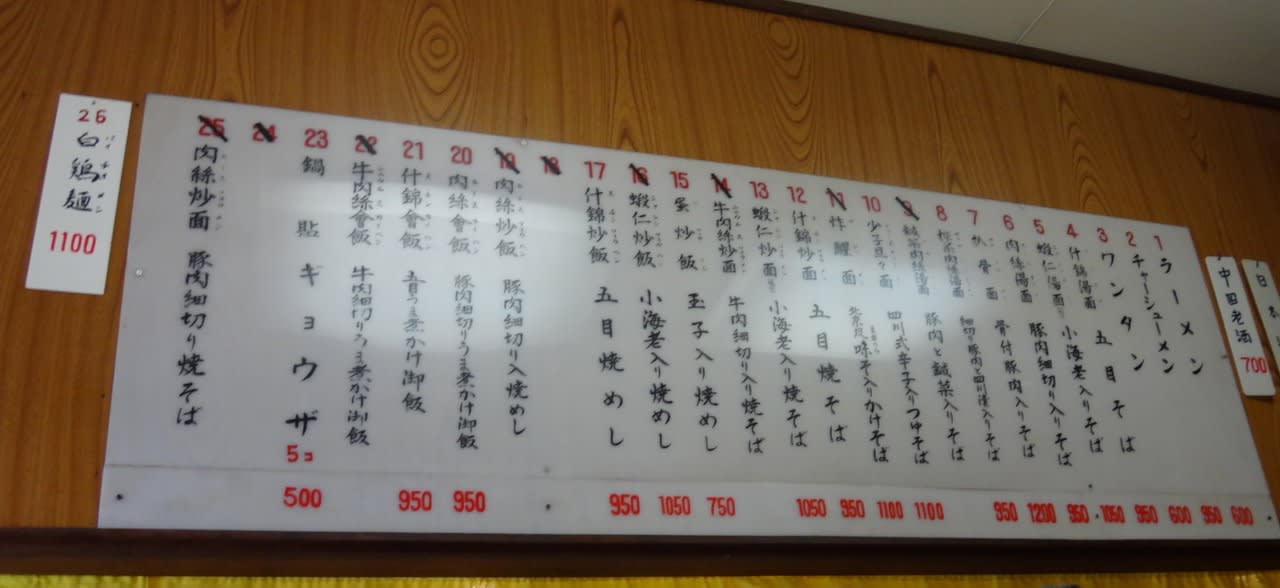 日本
中国老酒 700
1 ラーメン 600
2 チャーシューメン 950
3 ワンタン 600
4 什錦湯面 五目そば 950
5 蝦仁湯面 小海老入りそば 1050
6 肉絲湯面 豚肉細切り入りそば 950
7 排骨面 骨付豚肉入りそば 1200
8 榨菜肉絲湯面 細切り豚肉と四川漬入りそば 950
9 鹹菜肉絲湯面 豚肉と鹹菜入りそば
10 少子旦々面 四川式辛子入りつゆそば 1100
11 炸醤面 北京風味そ入りかけそば 1100
12 什錦炒面 五目焼そば 950
13 蝦仁炒面 小海老入り焼そば 1050
14 牛肉絲炒面 牛肉細切り入り焼そば
15 蛋炒飯 玉子入り焼めし 750
16 蝦仁炒飯 小海老入り焼めし 1050
17 什錦炒飯 五目焼めし 950
18
19 肉絲炒飯 豚肉細切り入焼めし
20 肉絲會飯 豚肉細切りうま煮かけ御飯 950
21 什錦會飯 五目うま煮かけ御飯 950
22 牛肉絲會飯 牛肉細切りうま煮かけ御飯
23 鍋貼 ギョウザ 5コ 500
24
25 肉絲炒面 豚肉細切り焼そば
26 白鶏麺 1100